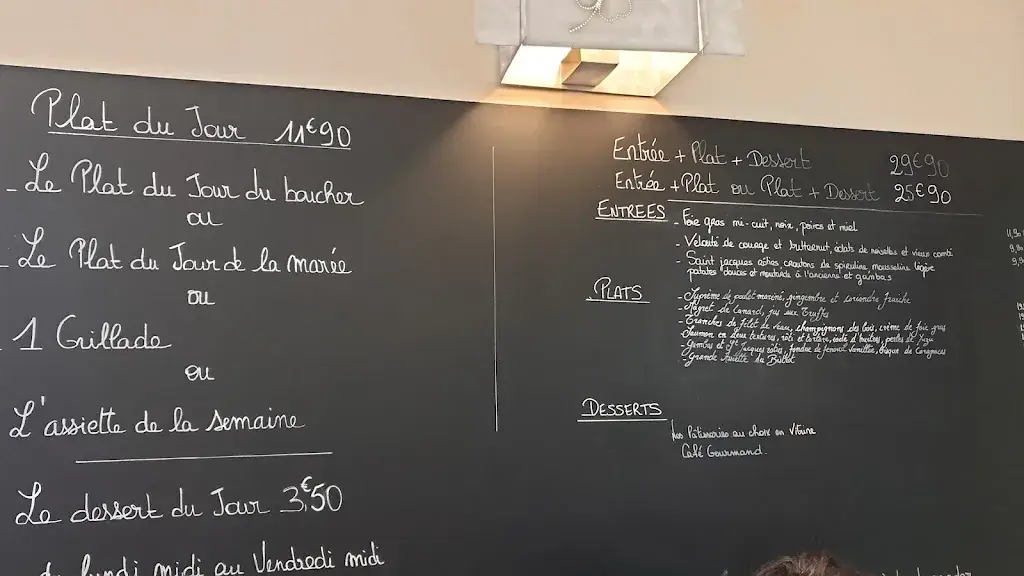 Plat du Jour 11€90
- Le Plat du Jour du boucher
ou
- Le Plat du Jour de la marée
ou
- 1 Grillade
ou
L'assiette de la semaine
Le dessert du Jour 3,€50
du lundi midi au Vendredi midi
Entrée + Plat + Dessert 29€90
Entrée + Plat ou Plat + Dessert 25€90
ENTREES
- Foie gras mi-cuit, noix, poires et miel
- Velouté de courge et butternut, éclats de noisettes et vieux comté
- Saint jacques rôties croutons de spiruline mousseline légère
patates douces et moutarde à l'ancienne et gambas
PLATS
- Suprême de poulet mariné, gingembre et coriandre fraiche
- Magret de Canard, jus aux Truffes
- Tranches de filet de veau, champignons des bois, crème de foie gras
- Saumon en deux textures, rôti et tartare, huitres, perles de Yuzu
- Gambas et St Jacques rôties, fondue de fenouil vanillée, bisque de
- Grande du
DESSERTS
Les Pâtisseries au choix en Vitrine
Café Gourmand